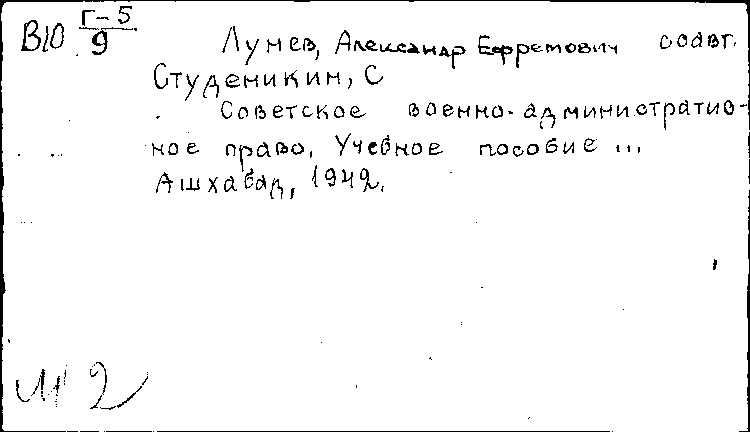 В10 Г-5
9
Лунев, Александр Ефремович соавт.
Студеникин, С
Советское военно-административ-
ное право, Учебное пособие ...
Ашхабад, 1942.
2